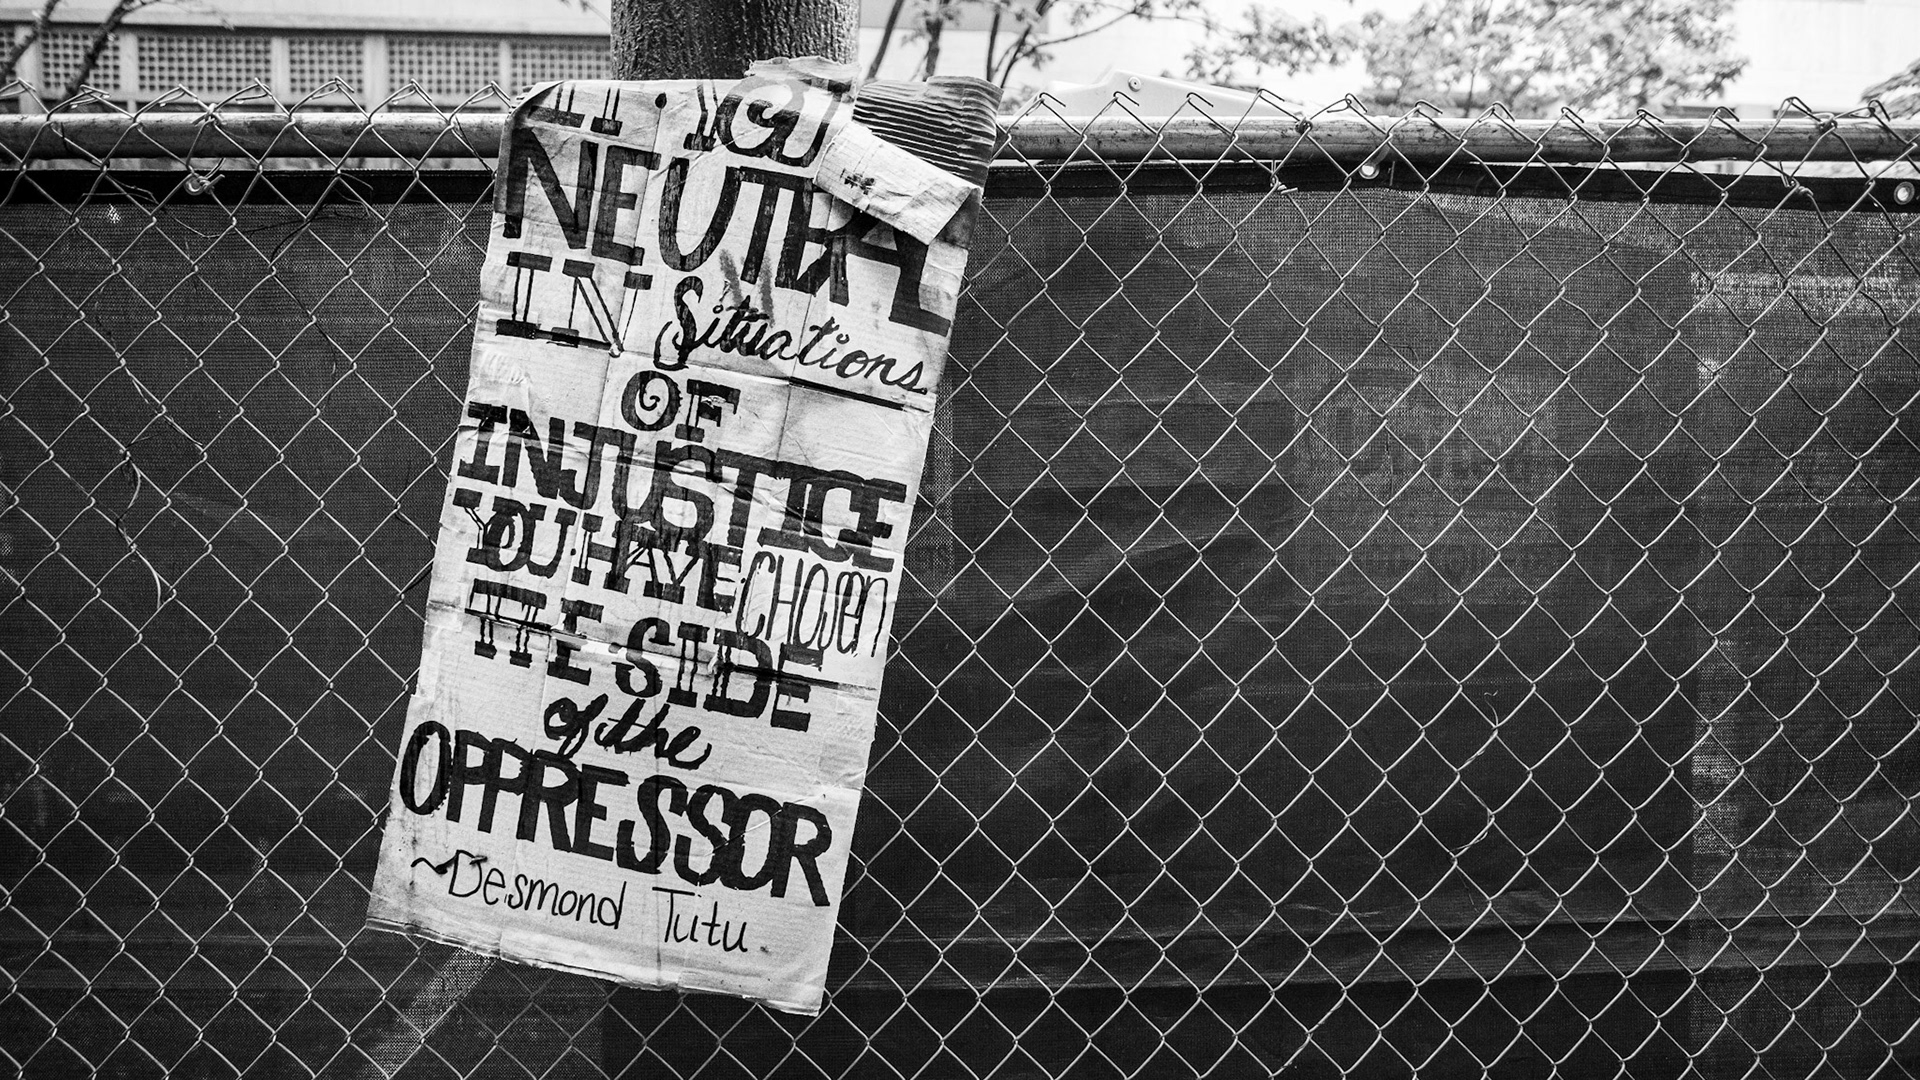 IF YOU
NEUTRAL
IN Situations
OF
INJUSTICE
YOU HAVE CHOSEN
THE SIDE
of the
OPPRESSOR
~Desmond Tutu